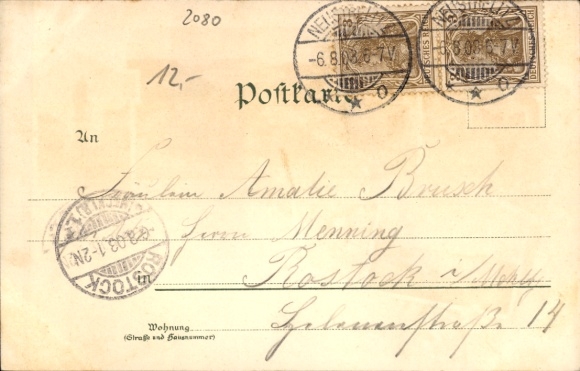 2080
12,-
NEUSTRELITZ
-6.8.03.6-7V.
NEUSTRELITZ
-6.8.03.6-7V.
DEUTSCHES REICH
DEUTSCHES REICH
Postkarte
An
Fräulein Amalie Brusch
Herrn Menning
in Rostock i/Meklb
Wohnung
(Straße und Hausnummer)
straße 14
ROSTOCK
6.8.03.1-2N.